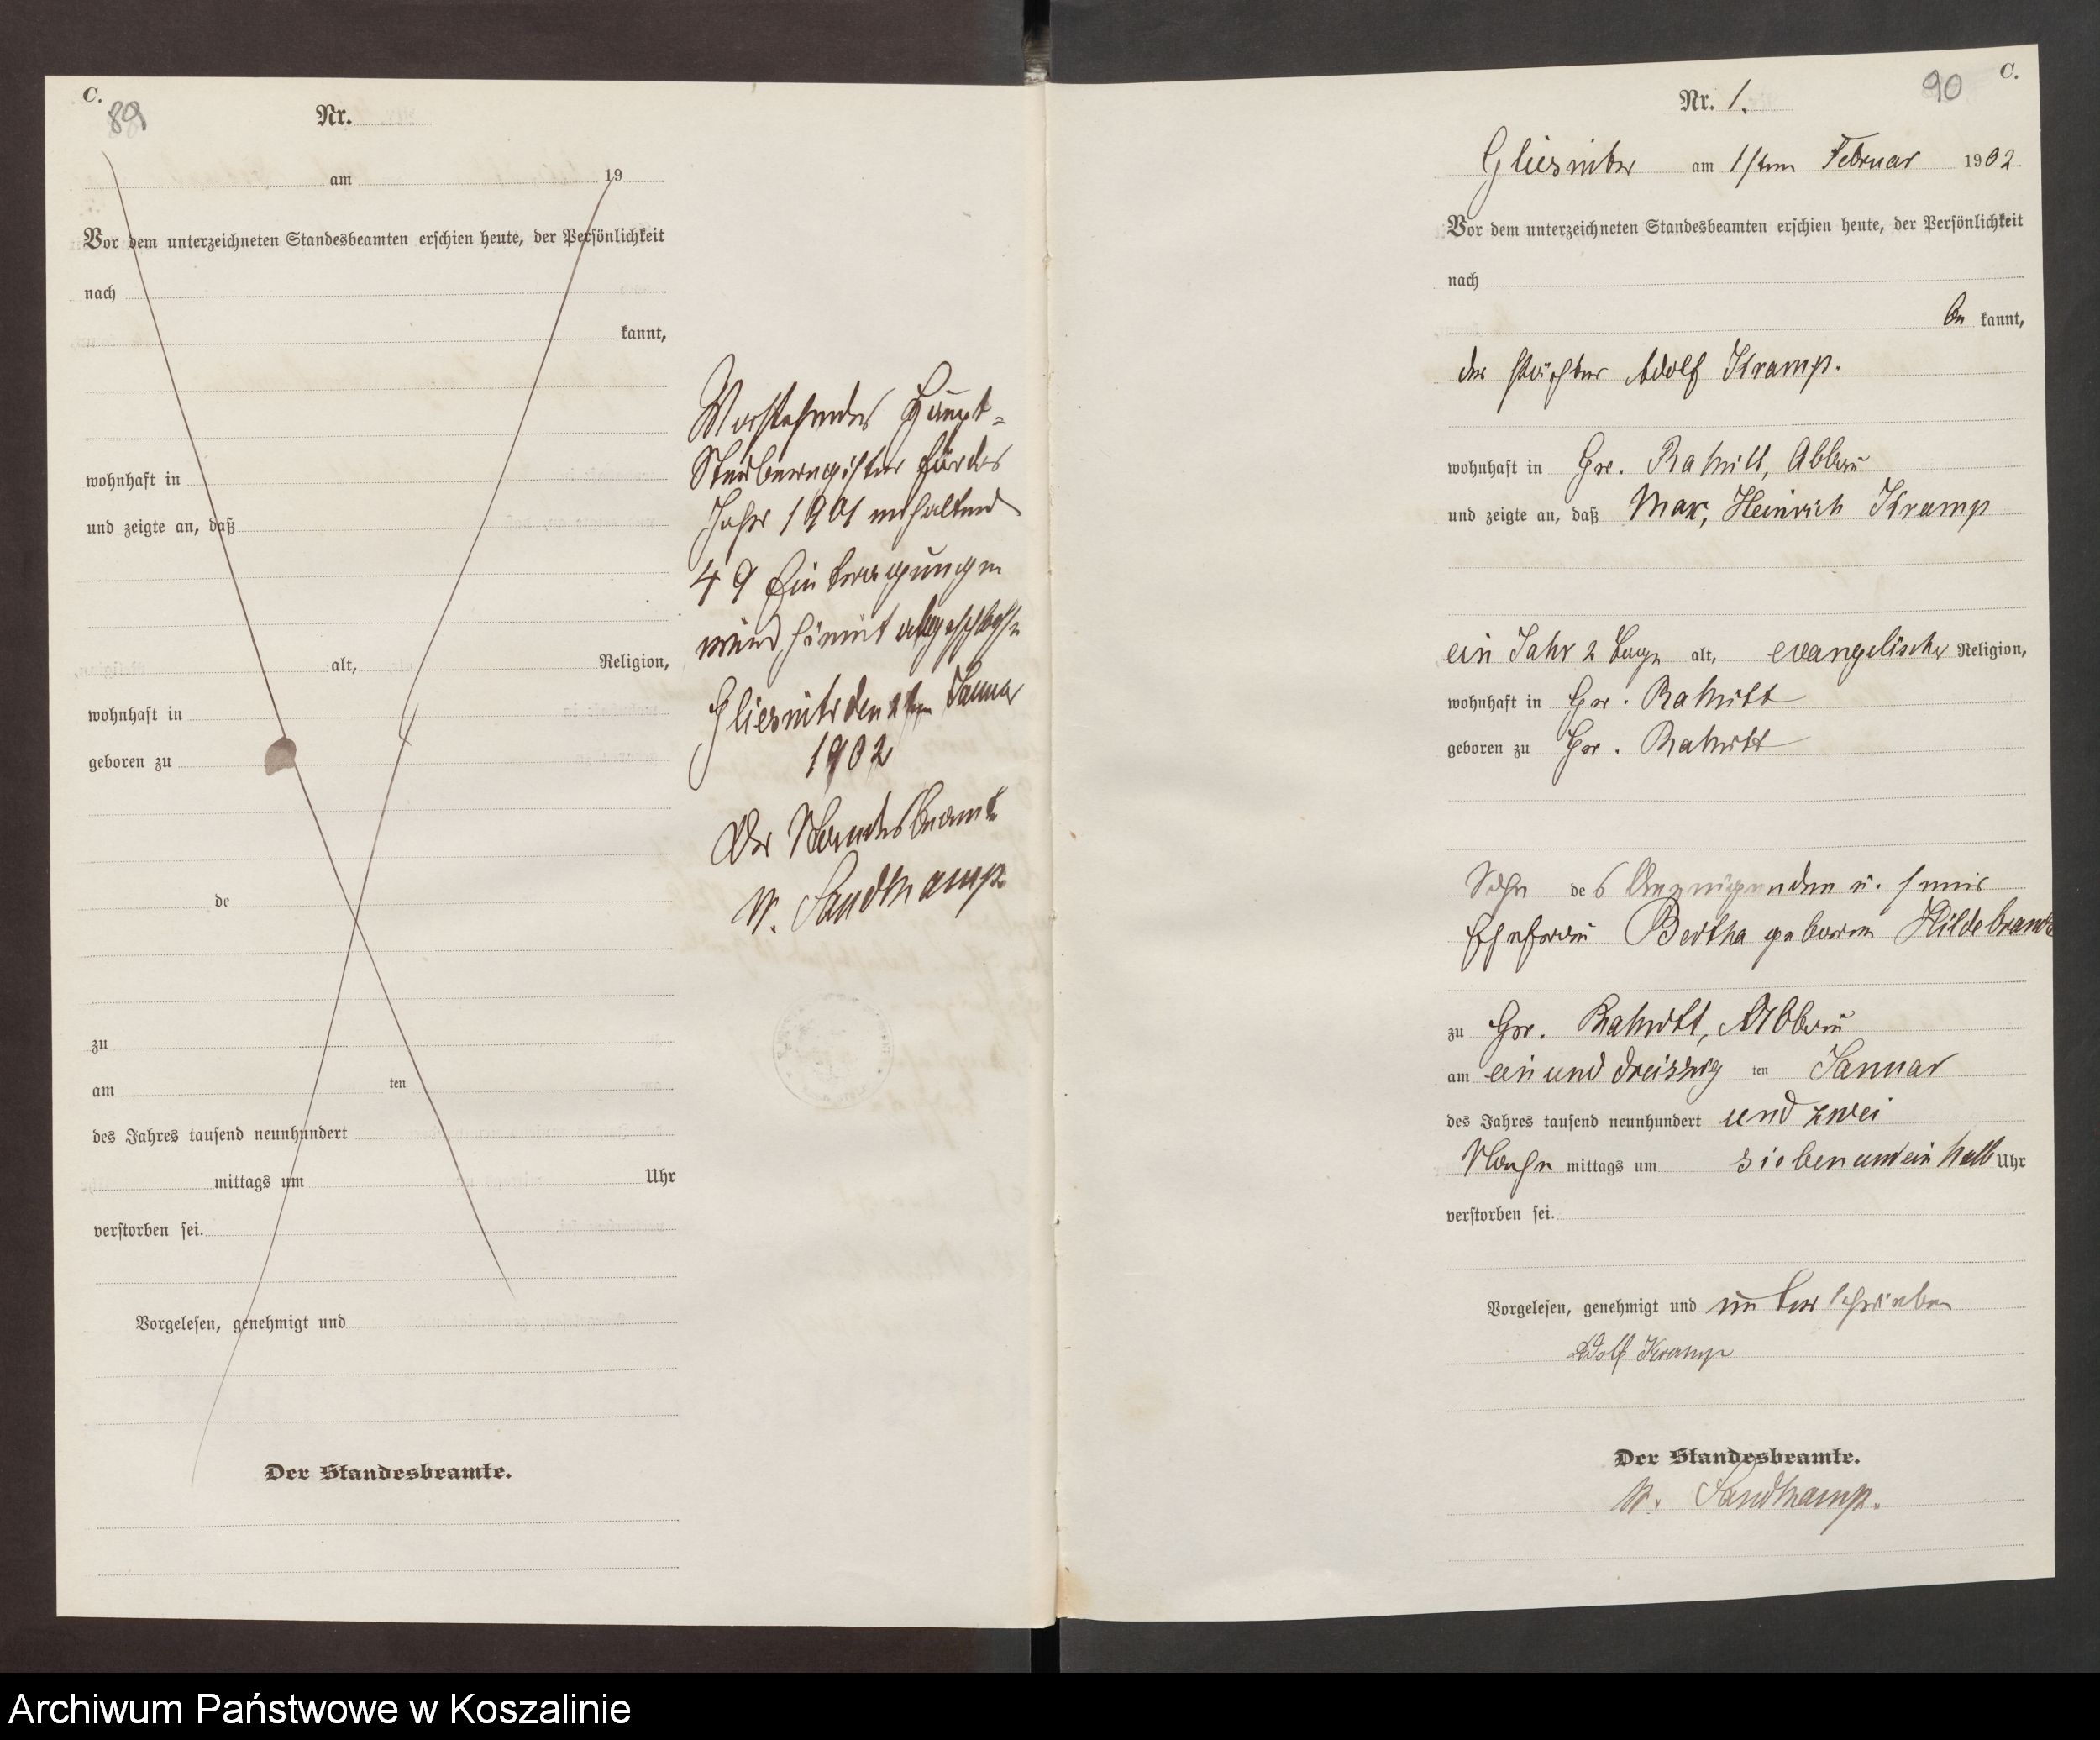 C.
89
Nr.
am 19
Vor dem unterzeichneten Standesbeamten erschien heute, der Persönlichkeit
nach
kannt,
wohnhaft in
und zeigte an, daß
alt, Religion,
wohnhaft in
geboren zu
de
zu
am ten
des Jahres tausend neunhundert
mittags um Uhr
verstorben sei.
Vorgelesen, genehmigt und
Der Standesbeamte.
Vorstehendes Haupt=
Sterberegister für das
Jahr 1901 enthaltend
49 Eintragungen
wird hiermit abgeschlossen
den Januar
1902
Der Standesbeamte
W. Sandkamp
90
C.
Nr. 1.
am 1ten Februar 1902
Vor dem unterzeichneten Standesbeamten erschien heute, der Persönlichkeit
nach
be kannt,
der Pächter Adolf Kramp.
wohnhaft in Gr. Abbau
und zeigte an, daß Max, Heinrich Kramp
ein Jahr 2 Tage alt, evangelischer Religion,
wohnhaft in Gr.
geboren zu Gr.
Sohn des Anzeigenden u. seiner
Ehefrau Bertha geborene Hildebrandt
zu Gr. Abbau
am ein und dreiszig ten Januar
des Jahres tausend neunhundert und zwei
Nach mittags um sieben und ein halb Uhr
verstorben sei.
Vorgelesen, genehmigt und unterschrieben
Adolf Kramp
Der Standesbeamte.
W. Sandkamp.
Archiwum Państwowe w Koszalinie